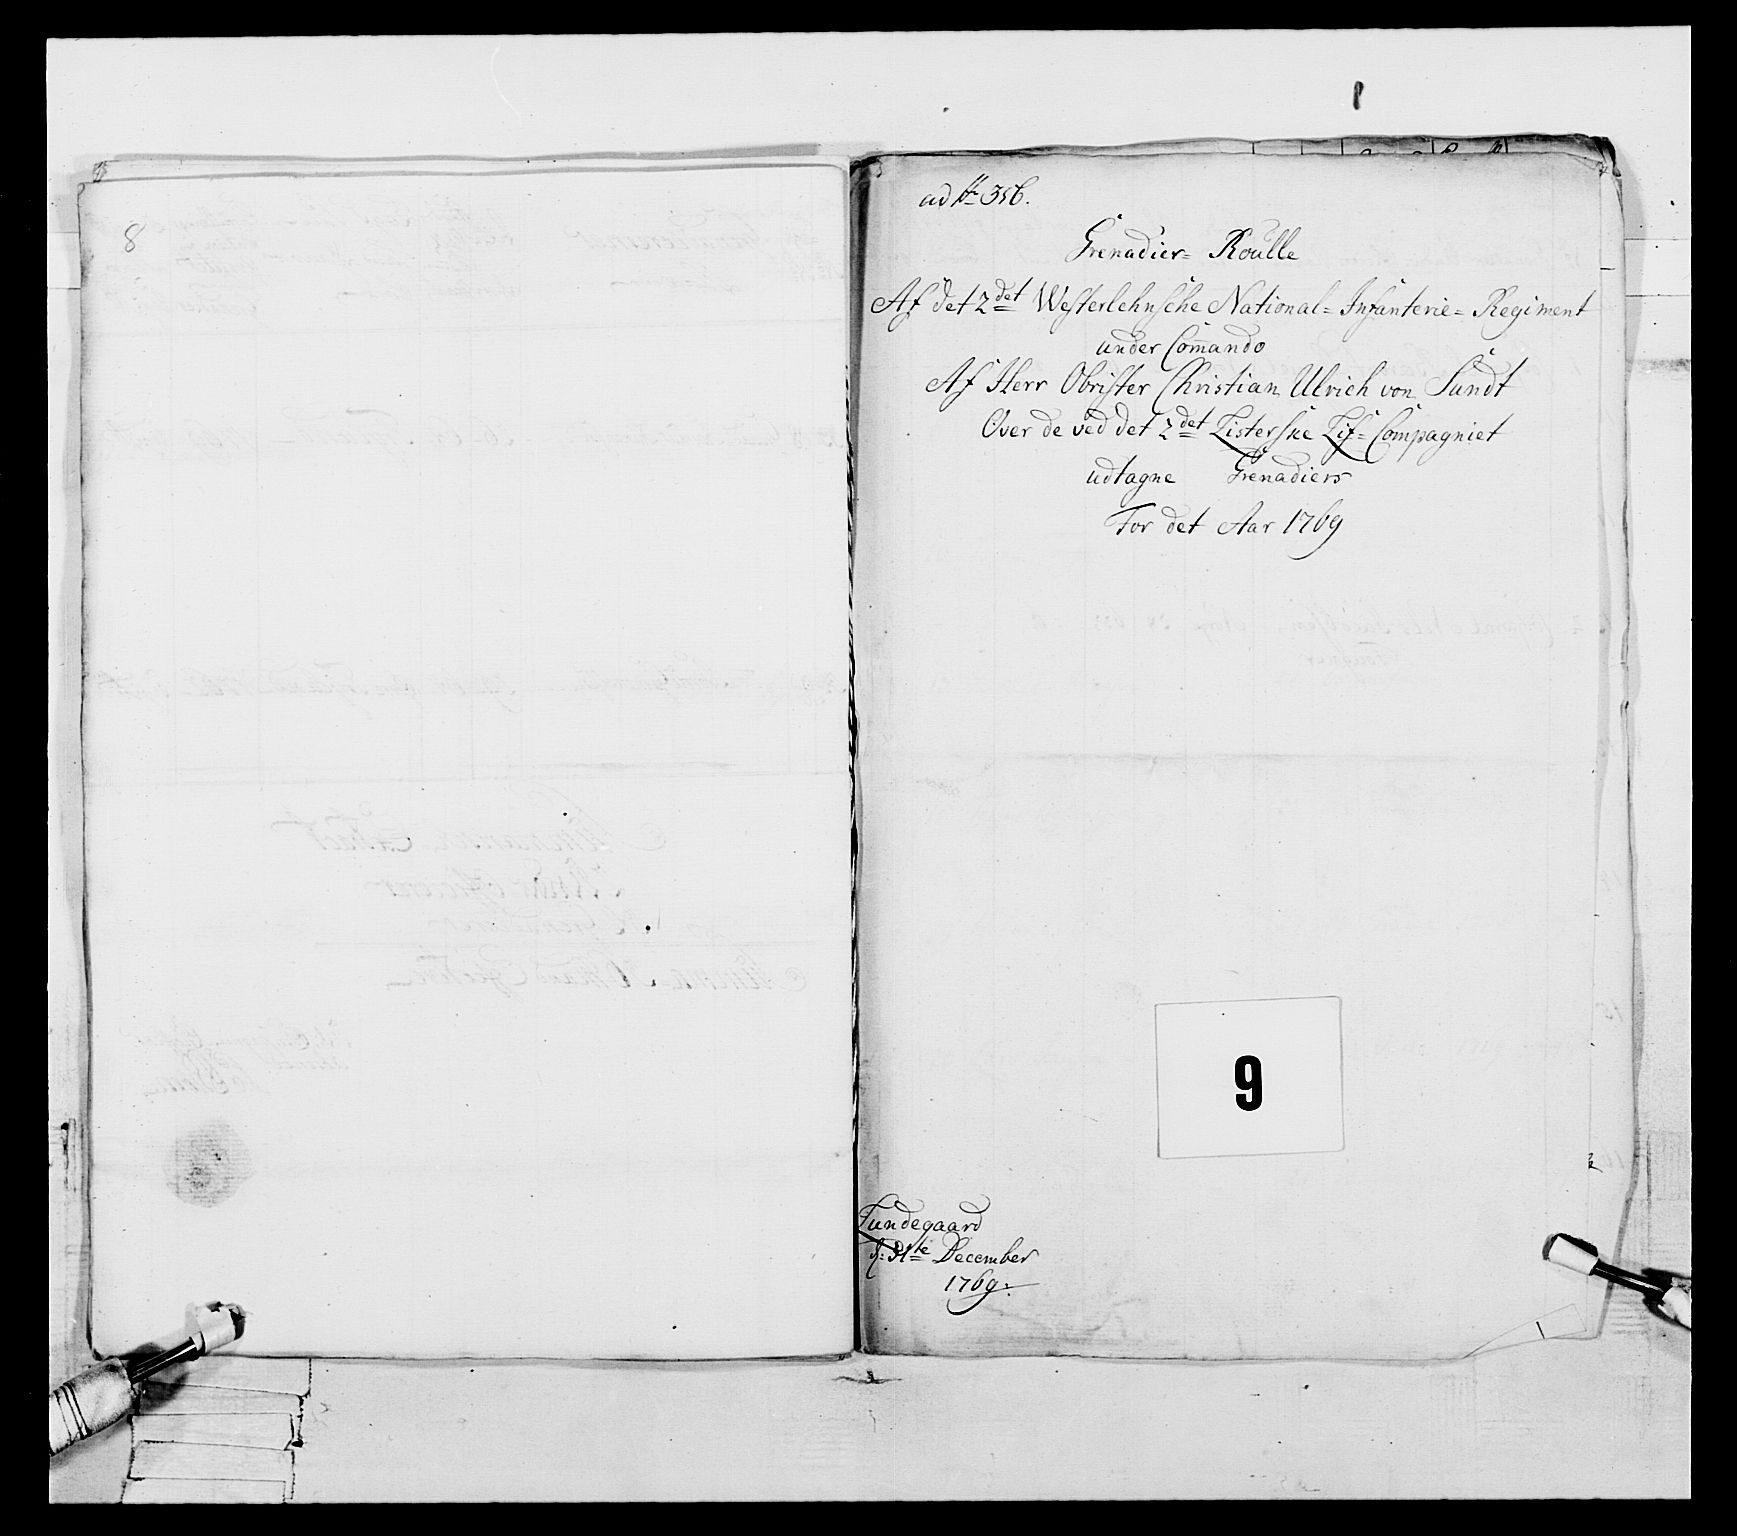 8
ad No 356.
Grenadier= Roulle
Af det 2det Westerlehnsche National= Infanterie= Regiment
under Com̄ando
Af Herr Obrister Christian Ulrich von Sundt
Over de ved det 2det Listerske Lif= Compagniet
udtagne Grenadiers
For det Aar 1769
9
Lundegaard
d: 31te December
1769.
1